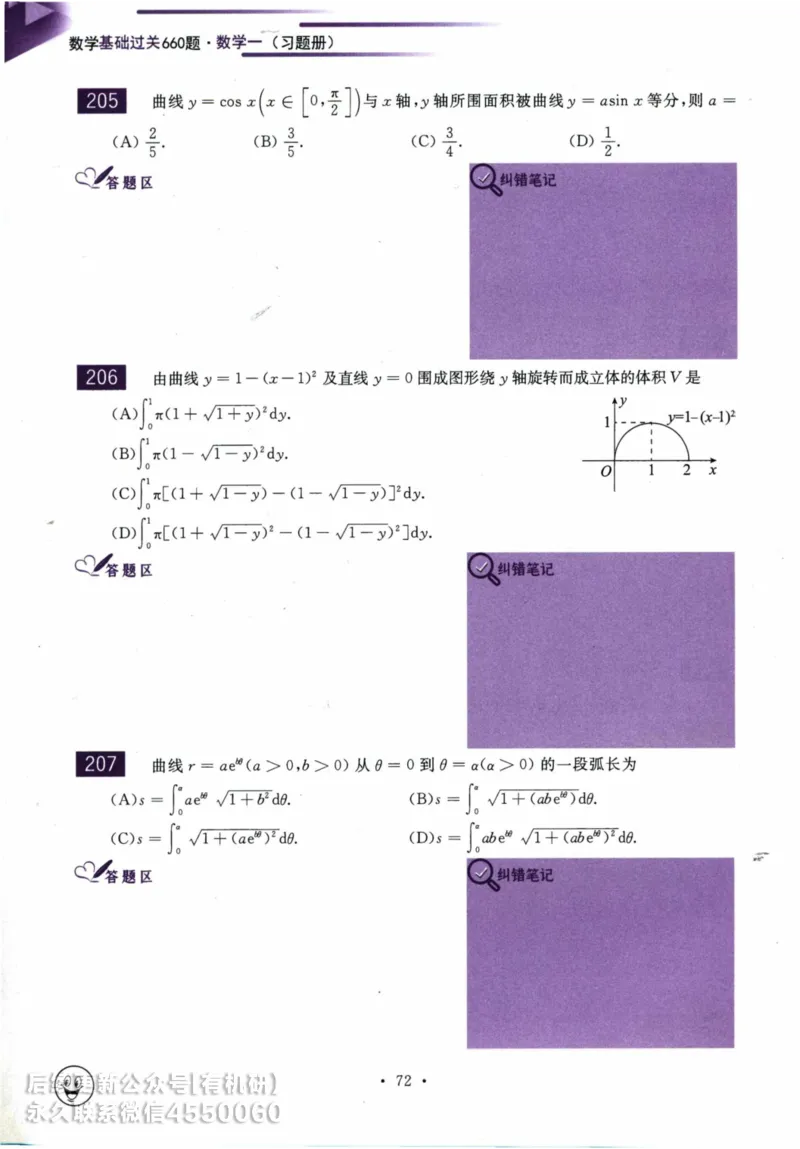 数学基础过关660题·数学一（习题册）
205 曲线 y = cos x(x ∈ [0, π/2])与 x 轴,y 轴所围面积被曲线 y = asin x 等分,则 a =
(A) 2/5. (B) 3/5. (C) 3/4. (D) 1/2.
答题区 纠错笔记
206 由曲线 y = 1 − (x − 1)² 及直线 y = 0 围成图形绕 y 轴旋转而成立体的体积 V 是
(A)∫₀¹ π(1 + √(1 + y))²dy.
(B)∫₀¹ π(1 − √(1 − y))²dy.
(C)∫₀¹ π[(1 + √(1 − y)) − (1 − √(1 − y))]²dy.
(D)∫₀¹ π[(1 + √(1 − y))² − (1 − √(1 − y))²]dy.
y
1 y=1−(x−1)²
O 1 2 x
答题区 纠错笔记
207 曲线 r = ae^{bθ}(a > 0,b > 0) 从 θ = 0 到 θ = α(α > 0) 的一段弧长为
(A)s = ∫₀^α ae^{bθ} √(1 + b²)dθ. (B)s = ∫₀^α √(1 + (abe^{bθ}))dθ.
(C)s = ∫₀^α √(1 + (ae^{bθ})²)dθ. (D)s = ∫₀^α abe^{bθ} √(1 + (abe^{bθ})²)dθ.
答题区 纠错笔记
· 72 ·
后续更新公众号[有机研]
永久联系微信4550060